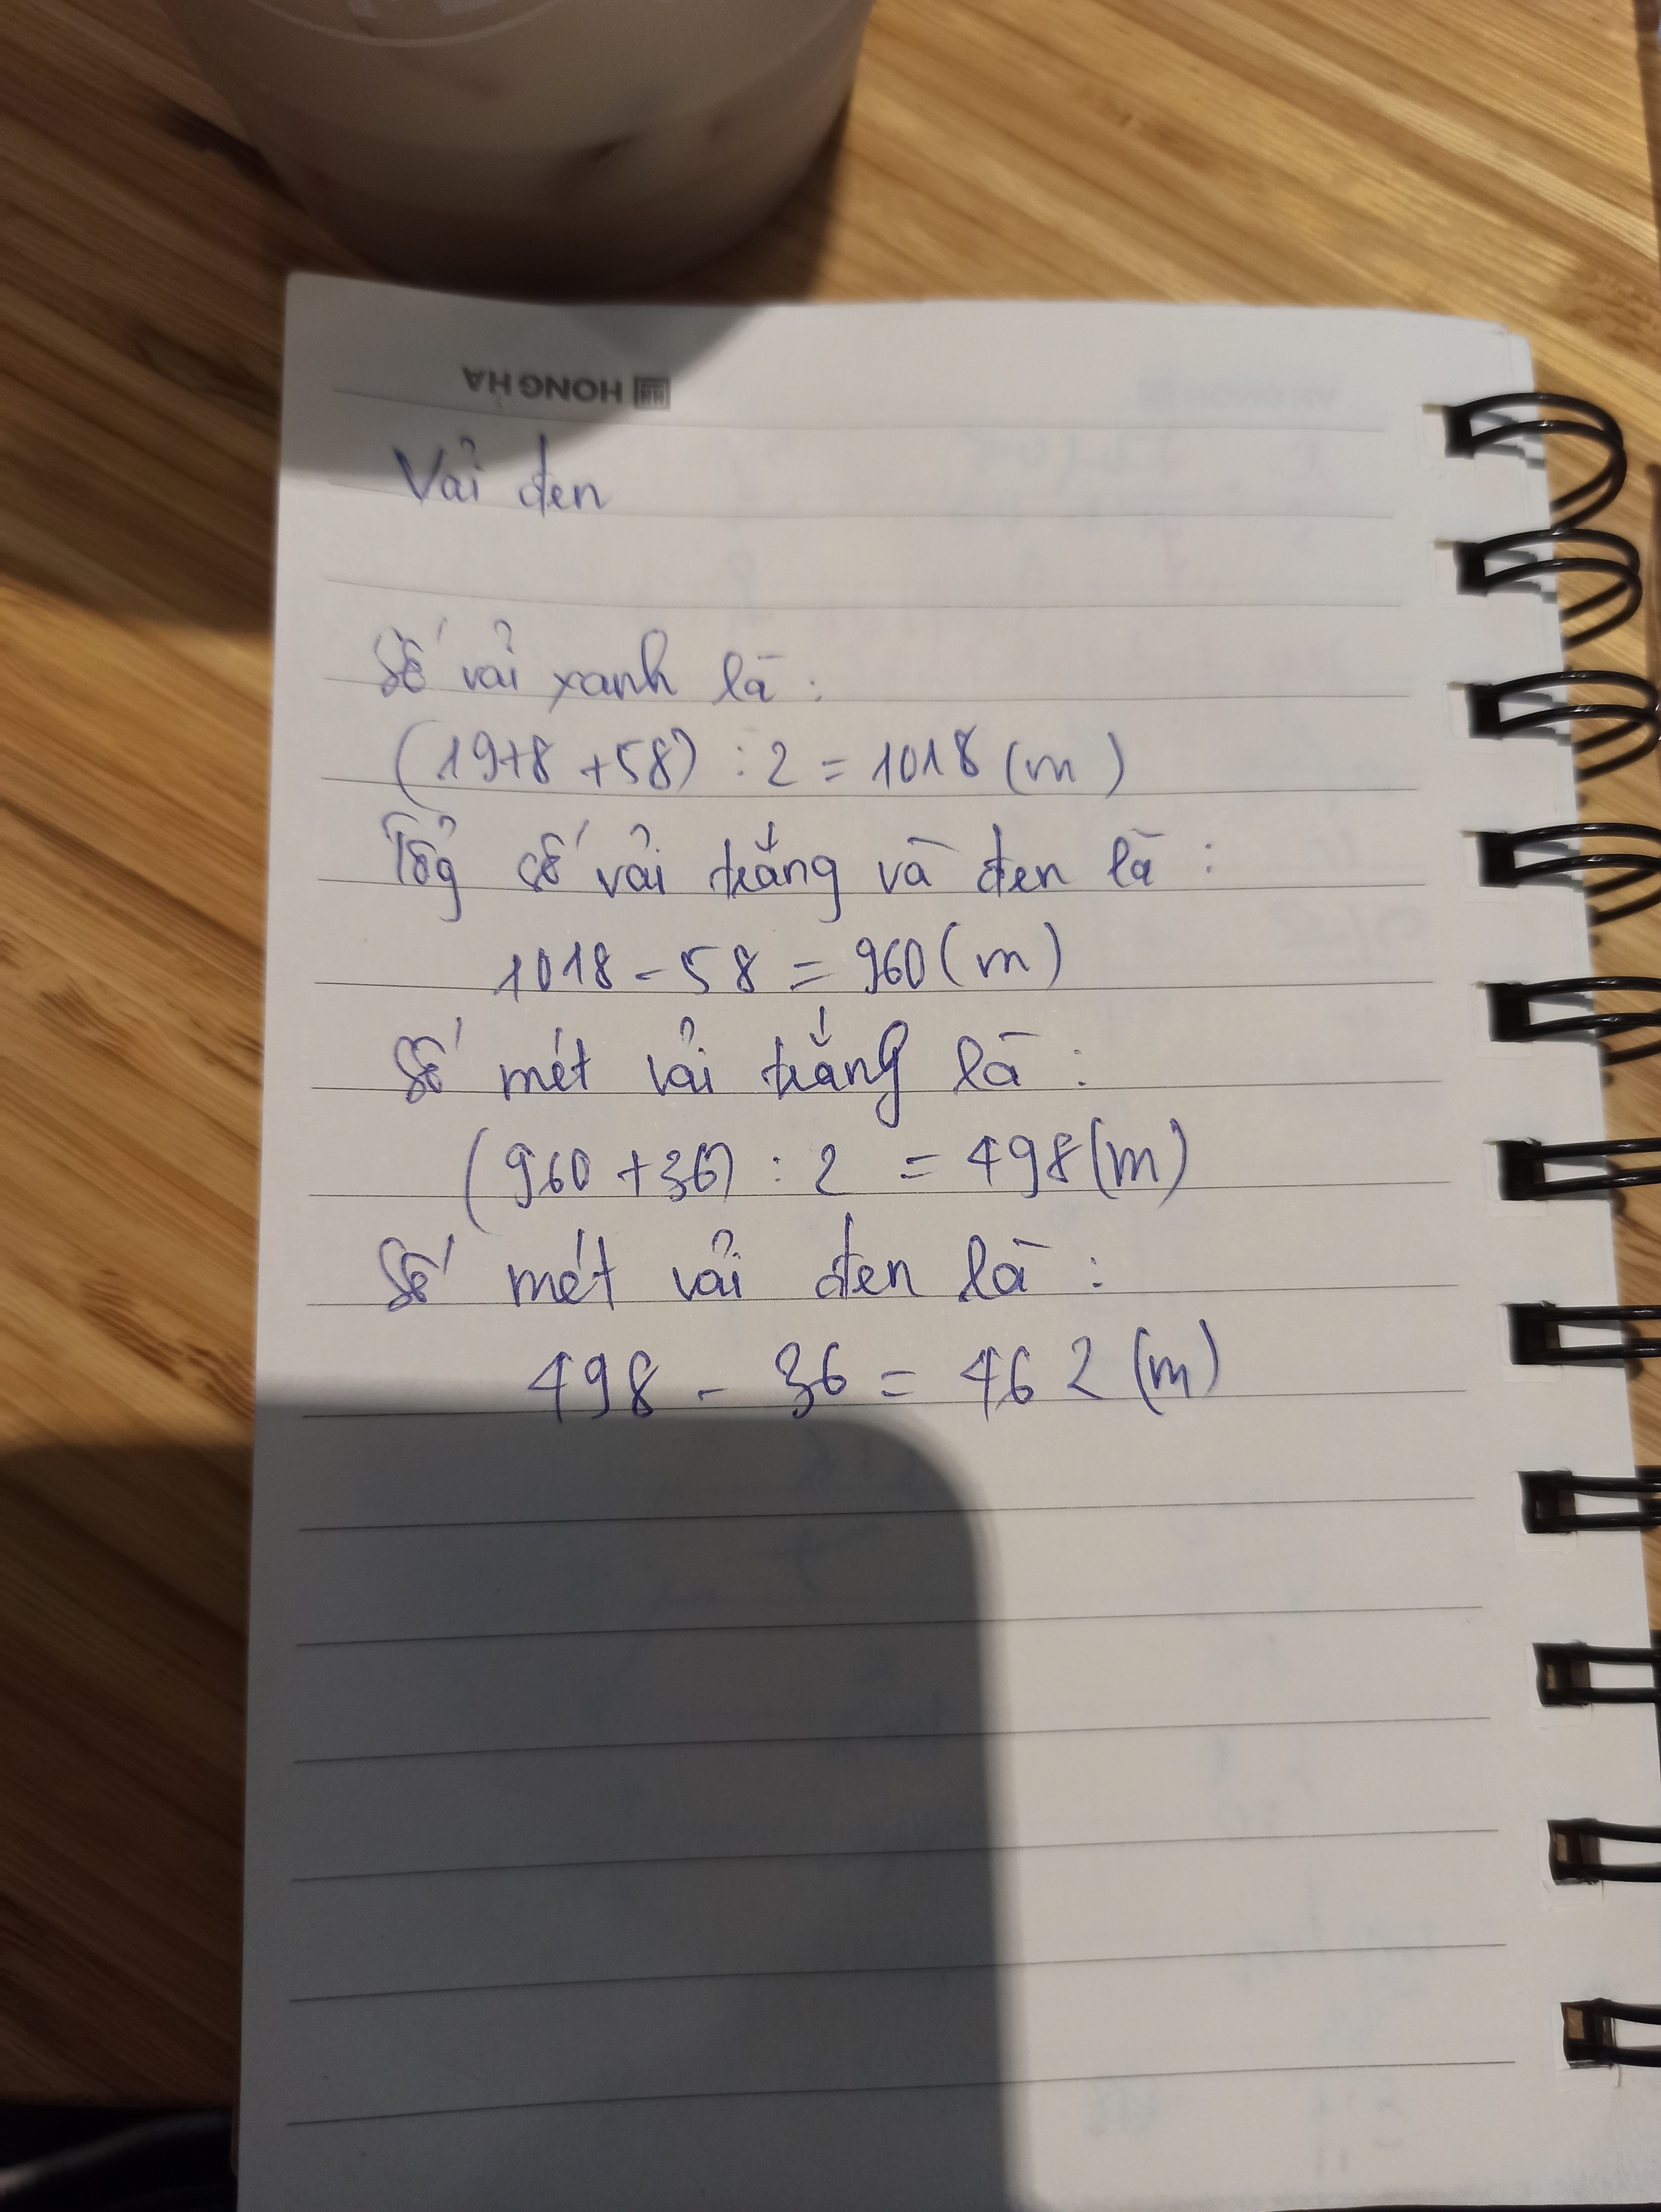 HONG HA
Vải đen
Số vải xanh là :
(1978 + 58) : 2 = 1018 (m)
Tổg số vải trắng và đen là :
1018 - 58 = 960 (m)
Số mét vải trắng là :
(960 + 36) : 2 = 498 (m)
Số mét vải đen là :
498 - 36 = 462 (m)